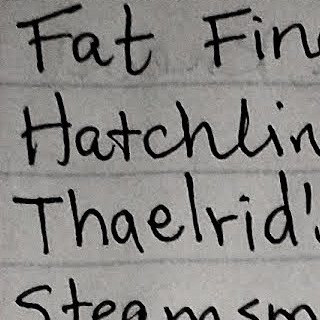 Fat Fin
Hatchlin
Thaelrid'
Steamsm